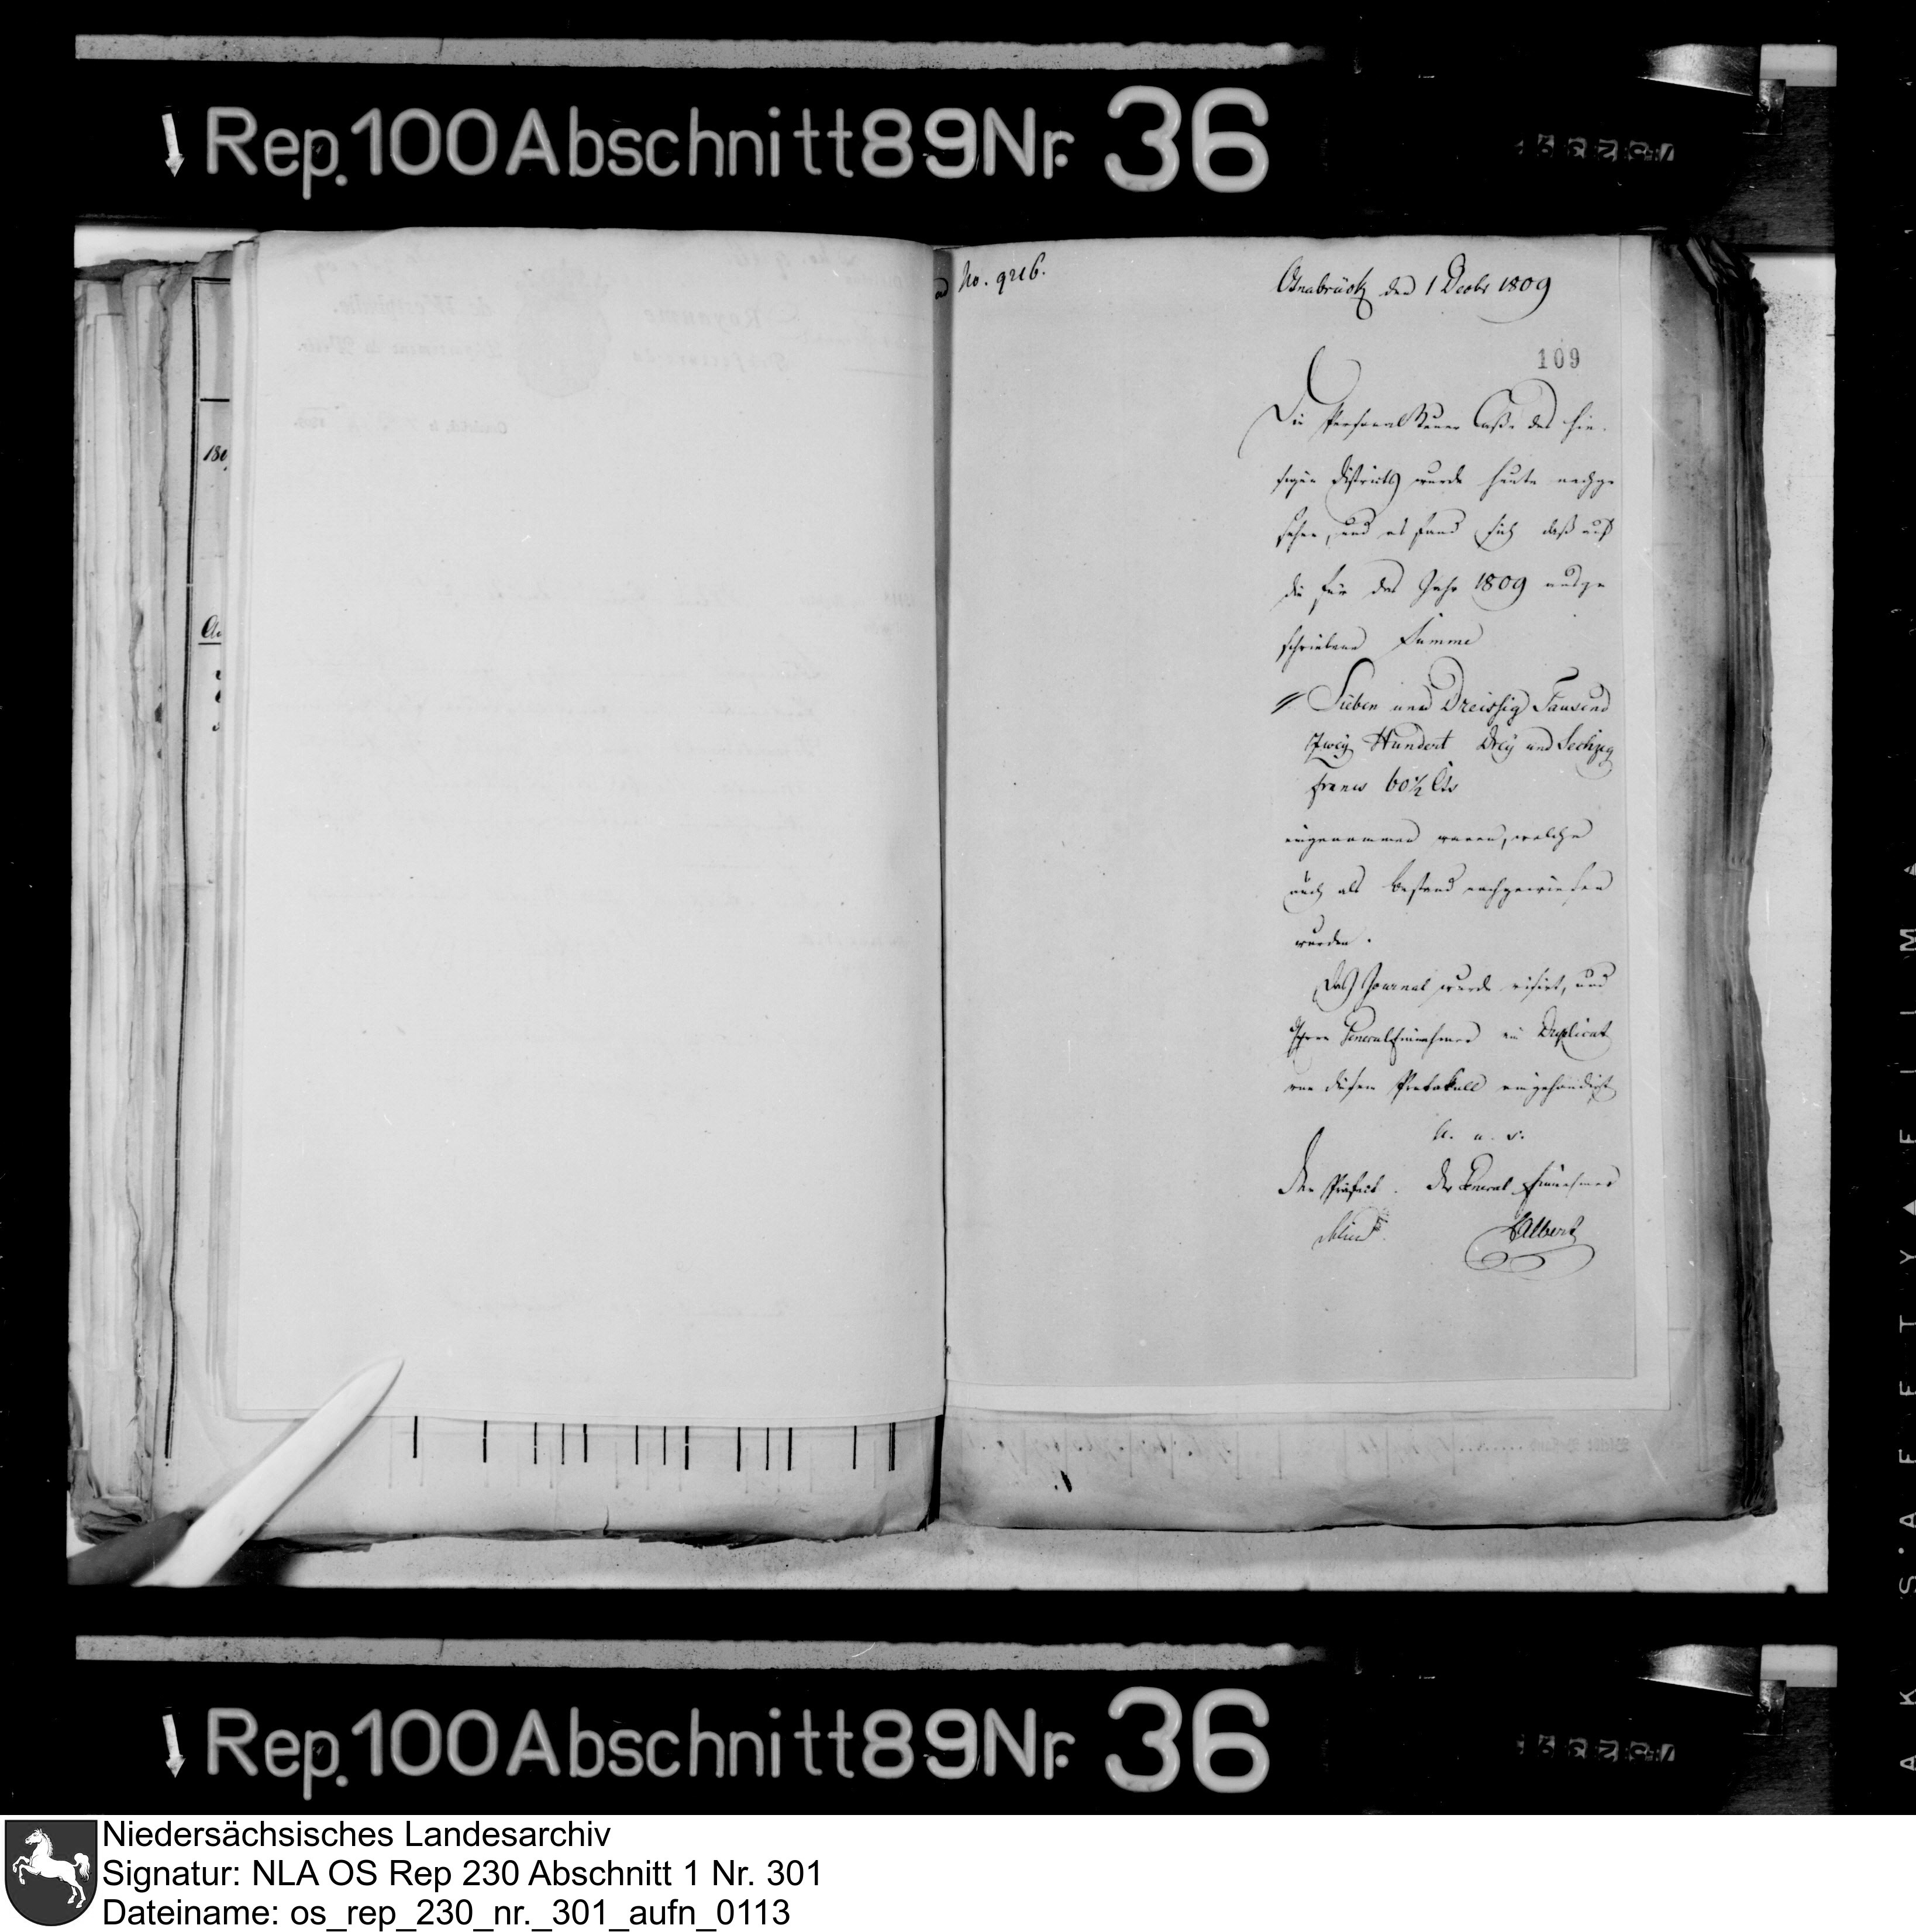 Rep. 100 Abschnitt 89 Nr. 36
ad No. 9216.
Osnabrück den 1 Decbr 1809
109
Die Personalsteuer Casse des hie-
sigen Districts wurde heute nachge
sehen, und es fand sich daß auf
die für das Jahr 1809 ausge
schriebene Summe
Sieben und Dreissig Tausend
Zwey Hundert Drey und Sechzig
Francs 60½ Cts
eingenommen waren, welche
auch als Bestand nachgewiesen
wurden.
Das Journal wurde visirt, und
Herrn Generaleinnehmer ein Duplicat
von diesem Protokoll eingehändigt
U. a. s.
Der Präfect. Der General Einnehmer
Albert
180
SAFETY FILM
Rep. 100 Abschnitt 89 Nr. 36
Niedersächsisches Landesarchiv
Signatur: NLA OS Rep 230 Abschnitt 1 Nr. 301
Dateiname: os_rep_230_nr._301_aufn_0113